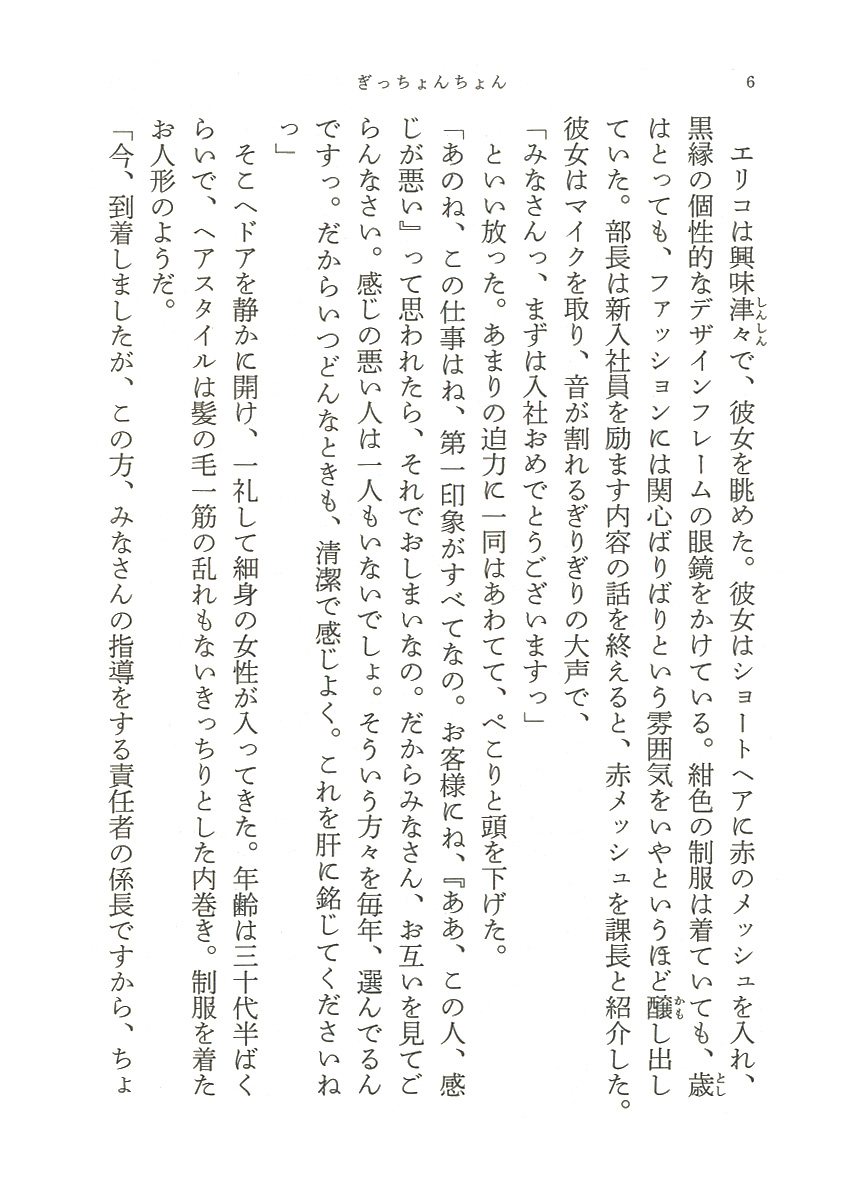 ぎっちょんちょん
6
エリコは興味津々で、彼女を眺めた。彼女はショートヘアに赤のメッシュを入れ、
しんしん
黒縁の個性的なデザインフレームの眼鏡をかけている。紺色の制服は着ていても、歳
とし
はとっても、ファッションには関心ばりばりという雰囲気をいやというほど醸し出し
かも
ていた。部長は新入社員を励ます内容の話を終えると、赤メッシュを課長と紹介した。
彼女はマイクを取り、音が割れるぎりぎりの大声で、
「みなさんっ、まずは入社おめでとうございますっ」
といい放った。あまりの迫力に一同はあわてて、ぺこりと頭を下げた。
「あのね、この仕事はね、第一印象がすべてなの。お客様にね、『ああ、この人、感
じが悪い』って思われたら、それでおしまいなの。だからみなさん、お互いを見てご
らんなさい。感じの悪い人は一人もいないでしょ。そういう方々を毎年、選んでるん
ですっ。だからいつどんなときも、清潔で感じよく。これを肝に銘じてくださいね
っ」
そこへドアを静かに開け、一礼して細身の女性が入ってきた。年齢は三十代半ばく
らいで、ヘアスタイルは髪の毛一筋の乱れもないきっちりとした内巻き。制服を着た
お人形のようだ。
「今、到着しましたが、この方、みなさんの指導をする責任者の係長ですから、ちょ